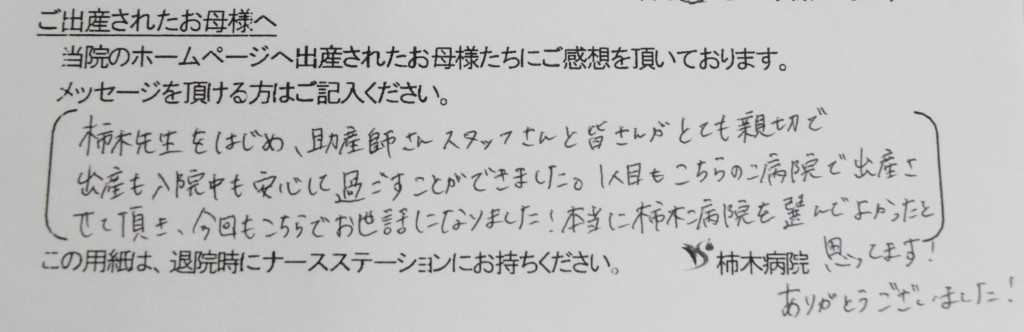 ご出産されたお母様へ
当院のホームページへ出産されたお母様たちにご感想を頂いております。
メッセージを頂ける方はご記入ください。
柿木先生をはじめ、助産師さんスタッフさんと皆さんがとても親切で
出産も入院中も安心して過ごすことができました。1人目もこちらの病院で出産さ
せて頂き、今回もこちらでお世話になりました!本当に柿木病院を選んでよかったと
思ってます!
ありがとうございました!
この用紙は、退院時にナースステーションにお持ちください。
柿木病院